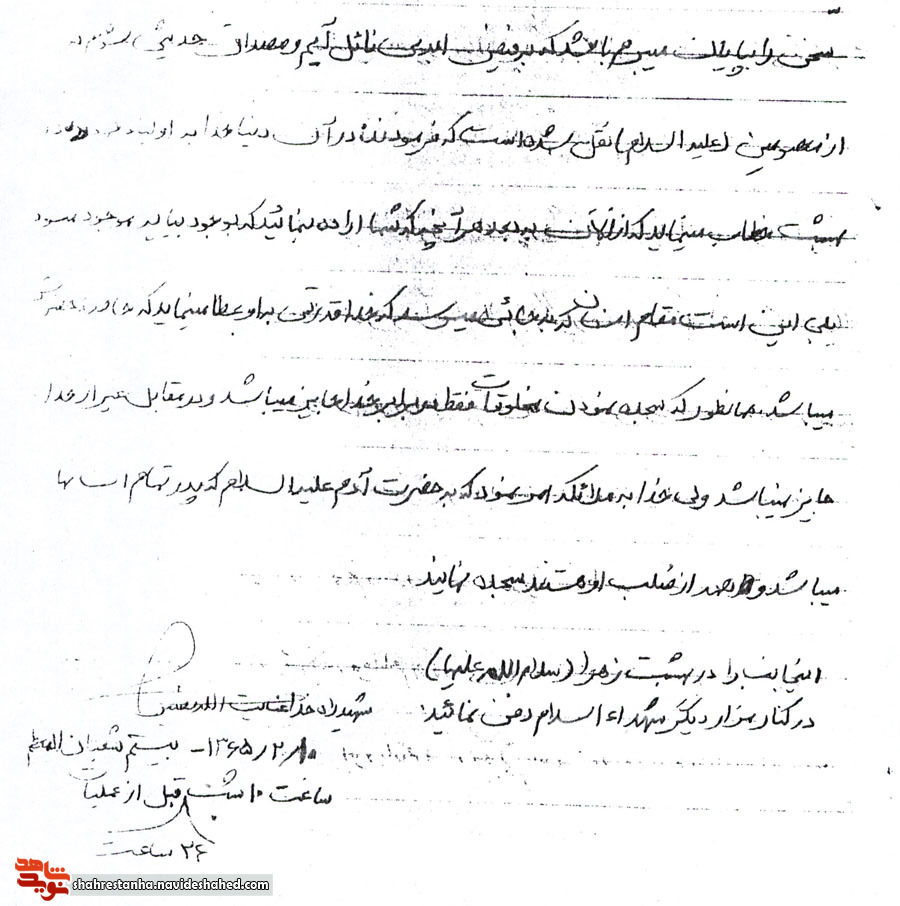 سخن را بپایان میبرم باشد که به فیض ابدی نائل آیم و مصداق حدیثی
از معصومین (علیه السلام) نقل شده است که فرمودند در آن دنیا خدا به
بهشت خطاب مینماید که از الآن ببعد هر آنچه که شما اراده نمائید که بوجود بیاید موجود میشود
بلی این است مقام انسان که به جائی میرسد که خدا قدرتی به او عطا مینماید که
میباشد همانطور که سجده نمودن مخلوقات فقط در برابر خدا جایز میباشد و در مقابل غیر از خدا
جایز نمیباشد ولی خدا به ملائکه امر نمود که به حضرت آدم علیه السلام که پدر تمام انسانها
میباشد و همه از صلب او هستند سجده نمایند
اینجانب را در بهشت زهرا (سلام الله علیها)
در کنار مزار دیگر شهداء السلام دفن نمائید.
شهید راه خدا عنایت الله
۱۳۶۵/۲/۱۰ - بیستم شعبان المعظم
ساعت ۱۰ شب قبل از عملیات
۲۶ ساعت
شاهد
نوید
shahrestanha.navideshahed.com